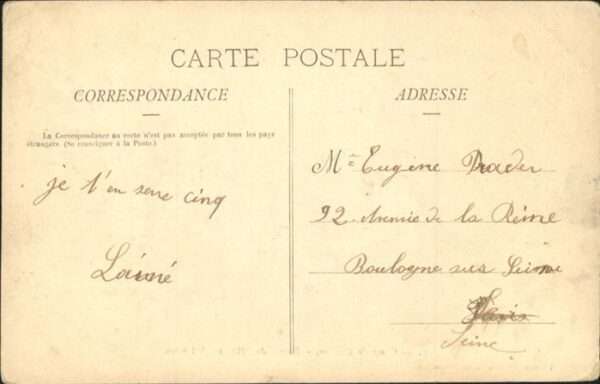 CARTE POSTALE
CORRESPONDANCE
La Correspondance au recto n'est pas acceptée par tous les pays
étrangers. (Se renseigner à la Poste.)
je t'en serre cinq
Laimé
ADRESSE
Mr Eugène
92 Avenue de la Reine
Boulogne sur Seine
Paris
Seine